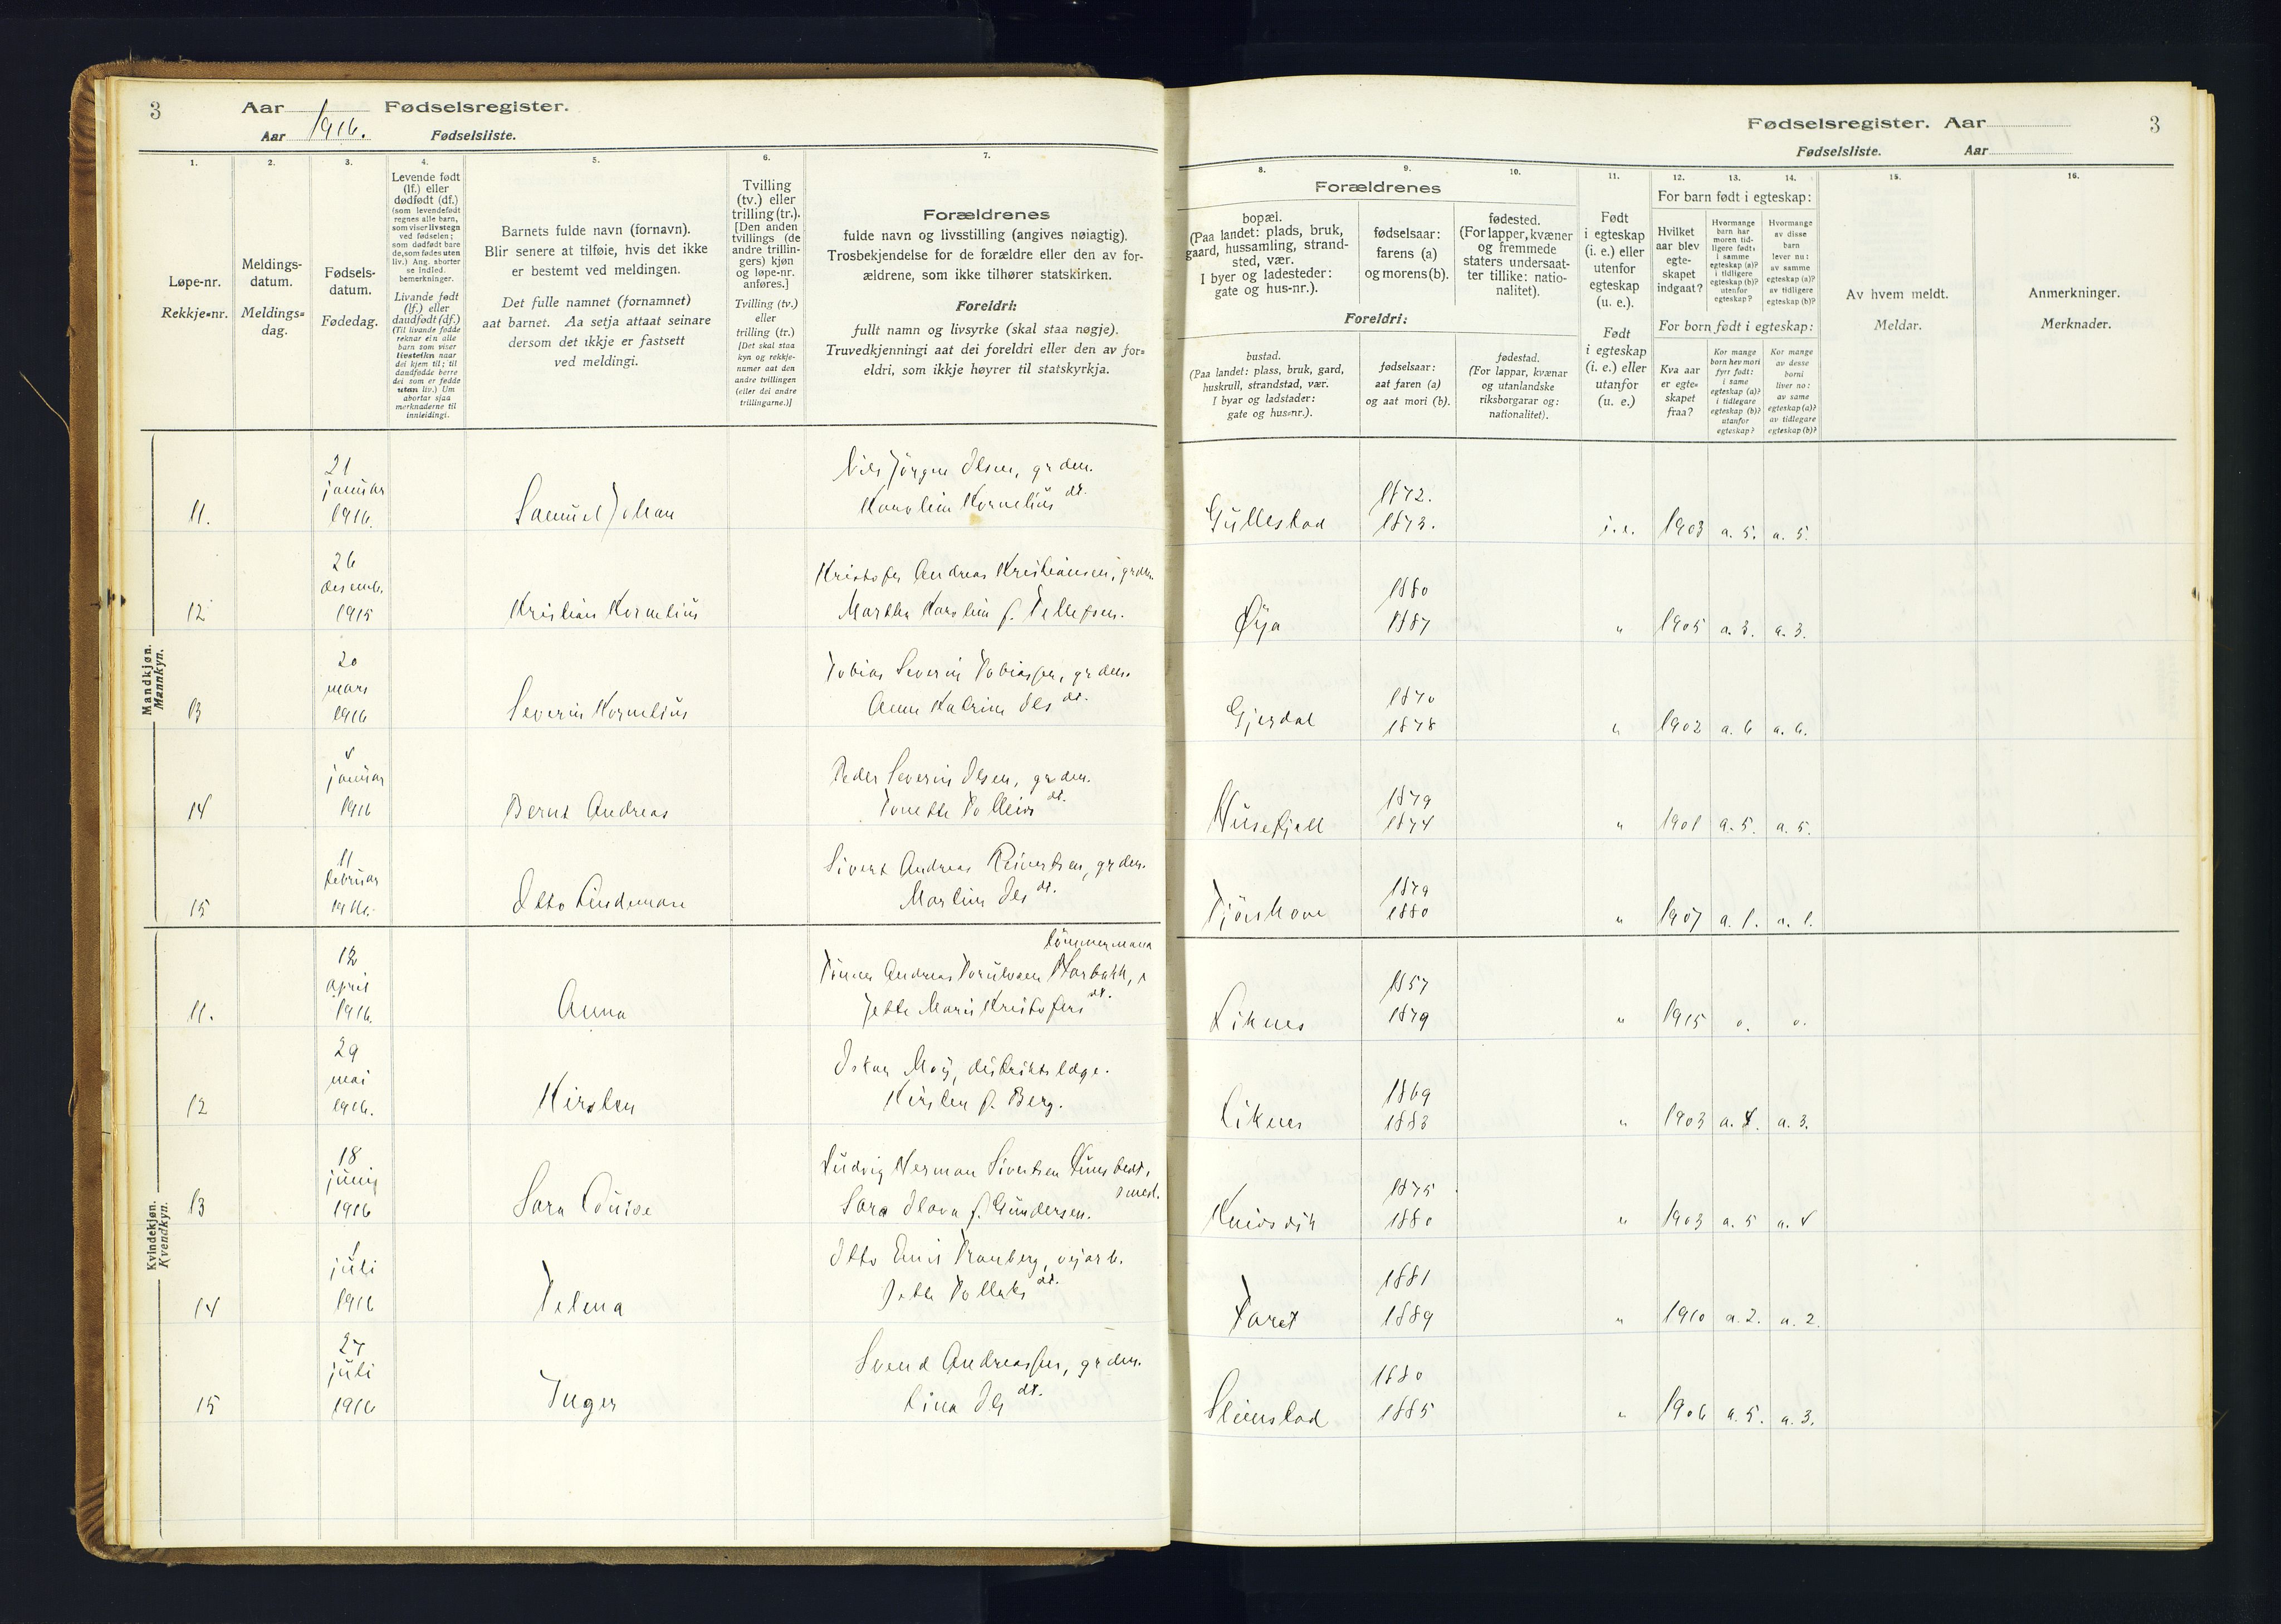 3
Aar Fødselsregister.
Aar 1916. Fødselsliste.
Fødselsregister. Aar
3
Fødselsliste. Aar
1.
Løpe-nr.
Rekkje=nr.
2.
Meldings-
datum.
Meldings=
dag.
3.
Fødsels-
datum.
Fødedag.
4.
Levende født
(lf.) eller
dødfødt (df.)
(som levendefødt
regnes alle barn,
som viser livstegn
ved fødselen;
som dødfødt bare
de, som fødes uten
liv.) Ang. aborter
se indled.
bemerkninger.
Livande født
(lf.) eller
daudfødt (df.)
(Til livande fødde
reknar ein alle
barn som viser
livsteikn naar
dei kjem til; til
daudfødde berre
dei som er fødde
utan liv.) Um
abortar sjaa
merknaderne til
innleidingi.
5.
Barnets fulde navn (fornavn).
Blir senere at tilføie, hvis det ikke
er bestemt ved meldingen.
Det fulle namnet (fornamnet)
aat barnet. Aa setja attaat seinare
dersom det ikkje er fastsett
ved meldingi.
6.
Tvilling
(tv.) eller
trilling (tr.).
[Den anden
tvillings (de
andre trillin-
gers) kjøn
og løpe-nr.
anføres.]
Tvilling (tv.)
eller
trilling (tr.)
[Det skal staa
kyn og rekkje-
numer aat den
andre tvillingen
(eller dei andre
trillingarne.)]
7.
Forældrenes
fulde navn og livsstilling (angives nøiagtig).
Trosbekjendelse for de forældre eller den av for-
ældrene, som ikke tilhører statskirken.
Foreldri:
fullt namn og livsyrke (skal staa nøgje).
Truvedkjenningi aat dei foreldri eller den av for=
eldri, som ikkje høyrer til statskyrkja.
8. 9. 10.
Forældrenes
bopæl.
(Paa landet: plads, bruk,
gaard, hussamling, strand-
sted, vær.
I byer og ladesteder:
gate og hus-nr.).
fødselsaar:
farens (a)
og morens (b).
fødested.
(For lapper, kvæner
og fremmede
staters undersaat-
ter tillike: natio-
nalitet).
Foreldri:
bustad.
(Paa landet: plass, bruk, gard,
huskrull, strandstad, vær.
I byar og ladstader:
gate og hus=nr.).
fødselsaar:
aat faren (a)
og aat mori (b).
fødestad.
(For lappar, kvænar
og utanlandske
riksborgarar og:
nationalitet).
11.
Født
i egteskap
(i. e.) eller
utenfor
egteskap
(u. e.).
Født
i egteskap
(i. e.) eller
utanfor
(u. e.)
12. 13. 14.
For barn født i egteskap:
Hvilket
aar blev
egte-
skapet
indgaat?
Hvormange
barn har
moren tid-
ligere født:
i samme
egteskap (a)?
i tidligere
egteskap (b)?
utenfor
egteskap?
Hvormange
av disse
barn
lever nu:
av samme
egteskap (a)?
av tidligere
egteskap (b)?
For born født i egteskap:
Kva aar
er egte=
skapet
fraa?
Kor mange
born hev mori
fyrr født:
i same
egteskap (a)?
i tidlegare
egteskap (b)?
utanfor
egteskap?
Kor mange
av desse
borni
liver no:
av same
egteskap (a)?
av tidlegare
egteskap (b)?
15.
Av hvem meldt.
Meldar.
16.
Anmerkninger.
Merknader.
Mandkjøn.
Mannkyn.
11. 21 januar 1916. Samuel Johan
Nils Jörgen Olsen, grdm.
Karolin Kornelius dt.
Gullestad 1872. 1873. i. e. 1903 a. 5. a. 5.
12 26 desemb. 1915 Kristian Kornelius
Kristofer Andreas Kristiansen, grdm.
Martha Karolin f. Tellefsen.
Øya 1880 1887 " 1905 a. 3. a. 3.
13 20 mars 1916 Severin Kornelius
Tobias Severin Tobiassen, grdm.
Anna Katrine Ols dt.
Gjerdal 1870 1878 " 1902 a. 6 a. 6.
14 4 januar 1916 Bernt Andreas
Peder Severin Olsen, grdm.
Tonette dt.
Husefjell 1879 1874 " 1901 a. 5. a. 5.
15 11 februar 1916. Otto
Sivert Andreas Reinertsen, grdm.
Martine Ols dt.
1879 1880 " 1907 a. 1. a. 1.
Kvindekjøn.
Kvendkyn.
11. 12 april 1916. Anna
tömmermann
Tönnes Andreas
Jette Marie Kristofers dt.
Liknes 1857 1879 " 1915 o. o.
12 29 mai 1916. Kirsten
Oskar Moy, distriktslæge.
Kirsten f. Berg.
Liknes 1869 1883 " 1903 a. 4. a. 3.
13 18 juni 1916 Sara Louise
Ludvig Herman Sivertsen
Sara f. Gundersen.
1875 1880 " 1903 a. 5 a. 4
14 1 juli 1916 Telma
Otto Emil Tranberg, vejarb.
Jette dt.
1881 1889 " 1910 a. 2. a. 2.
15 27 juli 1916 Inger
Svend Andreassen, grdm.
Lina Ols dt.
Steinstad 1880 1885 " 1906 a. 5. a. 3.